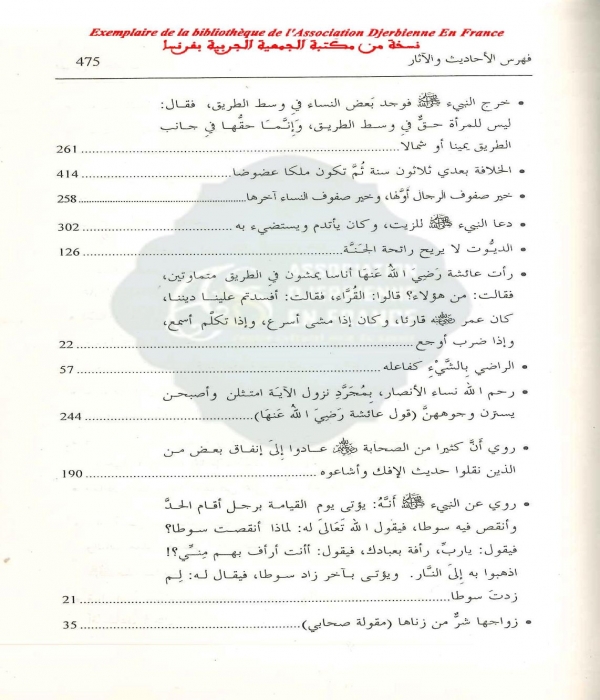 Exemplaire de la bibliothèque de l'Association Djerbienne En France
نسخة من مكتبة الجمعية الجربية بفرنسا
فهرس الأحاديث والآثار 475
• خرج النبيء ﷺ فوجد بَعض النساء في وسط الطريق، فقال:
ليس للمرأة حقٌّ في وسط الطريق، وَإِنَّمَا حقُّها في جانب
الطريق يمينا أو شمالا 261
• الخلافة بعدي ثلاثون سنة ثُمَّ تكون ملكا عضوضا 414
• خير صفوف الرجال أوَّلها، وخير صفوف النساء آخرها 258
• دعا النبيء ﷺ للزيت، وكان يأتدم ويستضيء به 302
• الديُّوث لا يريح رائحة الجَنَّة 126
• رأت عائشة رَضِيَ اللهُ عَنهَا أناسا يمشون في الطريق متماوتين،
فقالت: من هؤلاء؟ قالوا: القُرَّاء، فقالت: أفسدتم علينا ديننا،
كان عمر ﷺ قارئا، وكان إذا مشى أسرع، وإذا تكلَّم أسمع،
وإذا ضرب أوجع 22
• الراضي بِالشَّيْءِ كفاعله 57
• رحم الله نساء الأنصار، بِمُجَرَّدِ نزول الآيَة امتثلن وأصبحن
يسترن وجوههنَّ (قول عائشة رَضِيَ اللهُ عَنهَا) 244
• روي أَنَّ كثيرا من الصحابة ﷺ عادوا إِلَى إنفاق بعض من
الذين نقلوا حديث الإفك وأشاعوه 190
• روي عن النبيء ﷺ أَنَّهُ: يؤتى يوم القيامة برجل أقام الحدَّ
وأنقص فيه سوطا، فيقول الله تَعَالَى له: لماذا أنقصت سوطا؟
فيقول: ياربِّ، رأفة بعبادك، فيقول: أأنت أرأف بهم مِنِّي؟!
اذهبوا به إِلَى النَّار. ويؤتى بآخر زاد سوطا، فيقال له: لِم
زدتَ سوطا 21
• زواجها شرٌّ من زناها (مقولة صحابي) 35